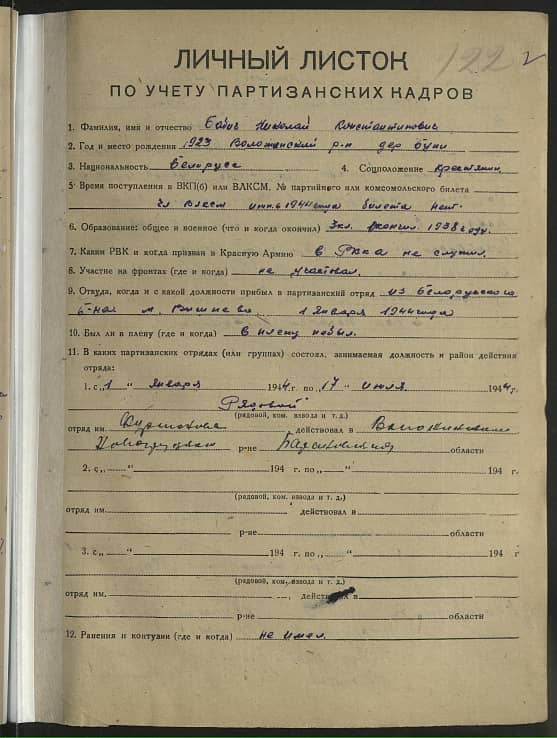 122
ЛИЧНЫЙ ЛИСТОК
ПО УЧЕТУ ПАРТИЗАНСКИХ КАДРОВ
1. Фамилия, имя и отчество Николай Константинович
2. Год и место рождения 1923 Воложинский р-н дер
3. Национальность белорусс 4. Соцположение крестьянин
5. Время поступления в ВКП(б) или ВЛКСМ, № партийного или комсомольского билета
чл ВЛКСМ 1944 года билета нет.
6. Образование: общее и военное (что и когда окончил) 3кл. окончил 1938 году.
7. Каким РВК и когда призван в Красную Армию в РККА не служил.
8. Участие на фронтах (где и когда) не участвовал.
9. Откуда, когда и с какой должности прибыл в партизанский отряд из белорусского
б-на м. Вишнево 1 января 1944 года
10. Был ли в плену (где и когда) в плену не был.
11. В каких партизанских отрядах (или группах) состоял, занимаемая должность и район действия
отряда:
1. с „1 " января 1944 г. по „17 " июля 1944 г.
Рядовой
(рядовой, ком. взвода и т. д.)
отряд им. действовал в Воложинском
р-не Барановичской области
2. с „ " 194 г. по „ " 194 г.
(рядовой, ком. взвода и т. д.)
отряд им. действовал в
р-не области
3. с „ " 194 г. по „ " 194 г
(рядовой, ком. взвода и т. д.)
отряд им. , действовал в
р-не области
12. Ранения и контузии (где и когда) не имел.